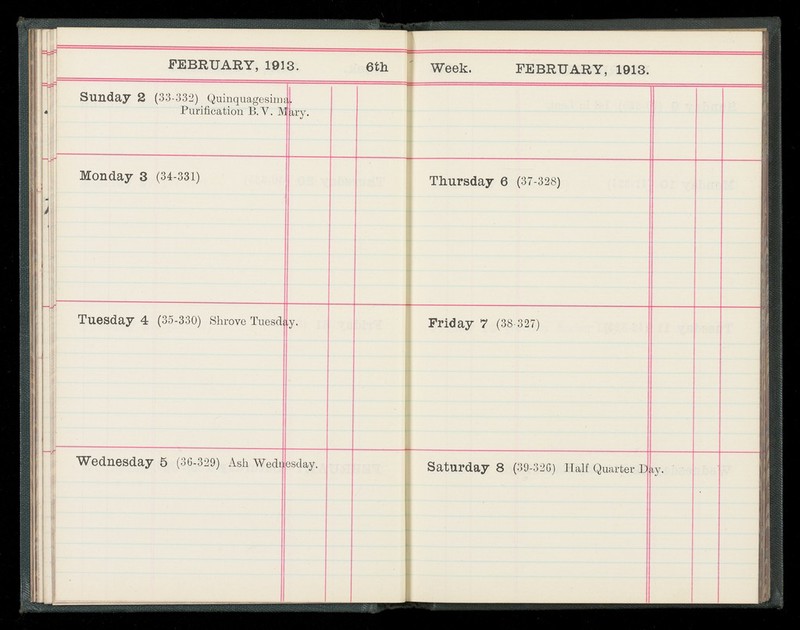 FEBRUARY, 1913. 6th
Sunday 2 (33-332) Quinquagesima.
Purification B.V. Mary.
Monday 3 (34-331)
Tuesday 4 (35-330) Shrove Tuesday.
Wednesday 5 (36-329) Ash Wednesday.
Week. FEBRUARY, 1913.
Thursday 6 (37-328)
Friday 7 (38-327)
Saturday 8 (39-326) Half Quarter Day.